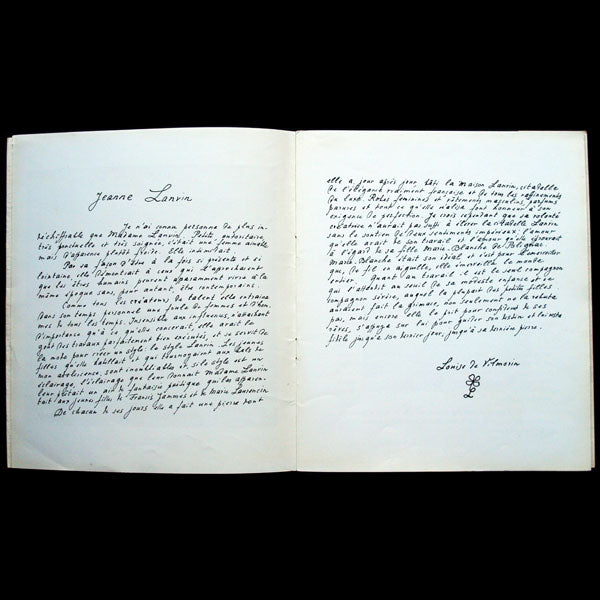 Jeanne Lanvin
Je n'ai connu personne de plus in-
déchiffrable que Madame Lanvin. Petite, autoritaire,
très ponctuelle et très soignée, c'était une femme aimable
mais d'apparence plutôt froide. Elle intimidait.
Par sa façon d'être à la fois si présente et si
lointaine, elle démontrait à ceux qui l'approchaient
que les êtres humains peuvent apparemment vivre à la
même époque sans, pour autant, être contemporains.
Comme tous les créateurs de talent elle entraina
dans son temps personnel une foule de femmes et d'hom-
mes de tous les temps. Insensible aux influences, n'attachant
d'importance qu'à ce qu'elle concevait, elle avait le
goût des travaux parfaitement bien exécutés, et se servit de
sa note pour créer un style: le style Lanvin. Les jeunes
filles qu'elle habillait et qui tournoyaient aux bals de
mon adolescence, sont inoubliables et, si le style est un
éclairage, l'éclairage que leur donnait Madame Lanvin
leur prêtait un air de fantaisie poétique qui les apparen-
tait aux jeunes filles de Francis Jammes et de Marie Laurencin
De chacun de ses jours elle a fait une pierre dont
elle a jour après jour bâti la Maison Lanvin, citadelle
de l'élégance vraiment française et de tous les raffinements
du luxe. Robes féminines et vêtements masculins, parfums
parures et tout ce qu'elle réalisa font honneur à son
exigence de perfection. Je crois cependant que sa volonté
créatrice n'aurait pas suffi à élever la citadelle Lanvin
sans le soutien de deux sentiments impérieux: l'amour
qu'elle avait de son travail et l'amour qu'elle éprouvait
à l'égard de sa fille Marie-Blanche de Polignac.
Marie-Blanche était son idéal et c'est pour l'émerveiller
que, de fil en aiguille, elle émerveilla le monde
entier. Quant au travail il est le seul compagnon
qui l'attendit au seuil de sa modeste enfance et ce
compagnon sévère, auquel la plupart des petites filles
auraient fait la grimace, non seulement ne la rebuta
pas, mais encore elle le prit pour confident de ses
rêves, s'appuya sur lui pour guider son destin et lui resta
fidèle jusqu'à son dernier jour, jusqu'à sa dernière pierre.
Louise de Vilmorin
L